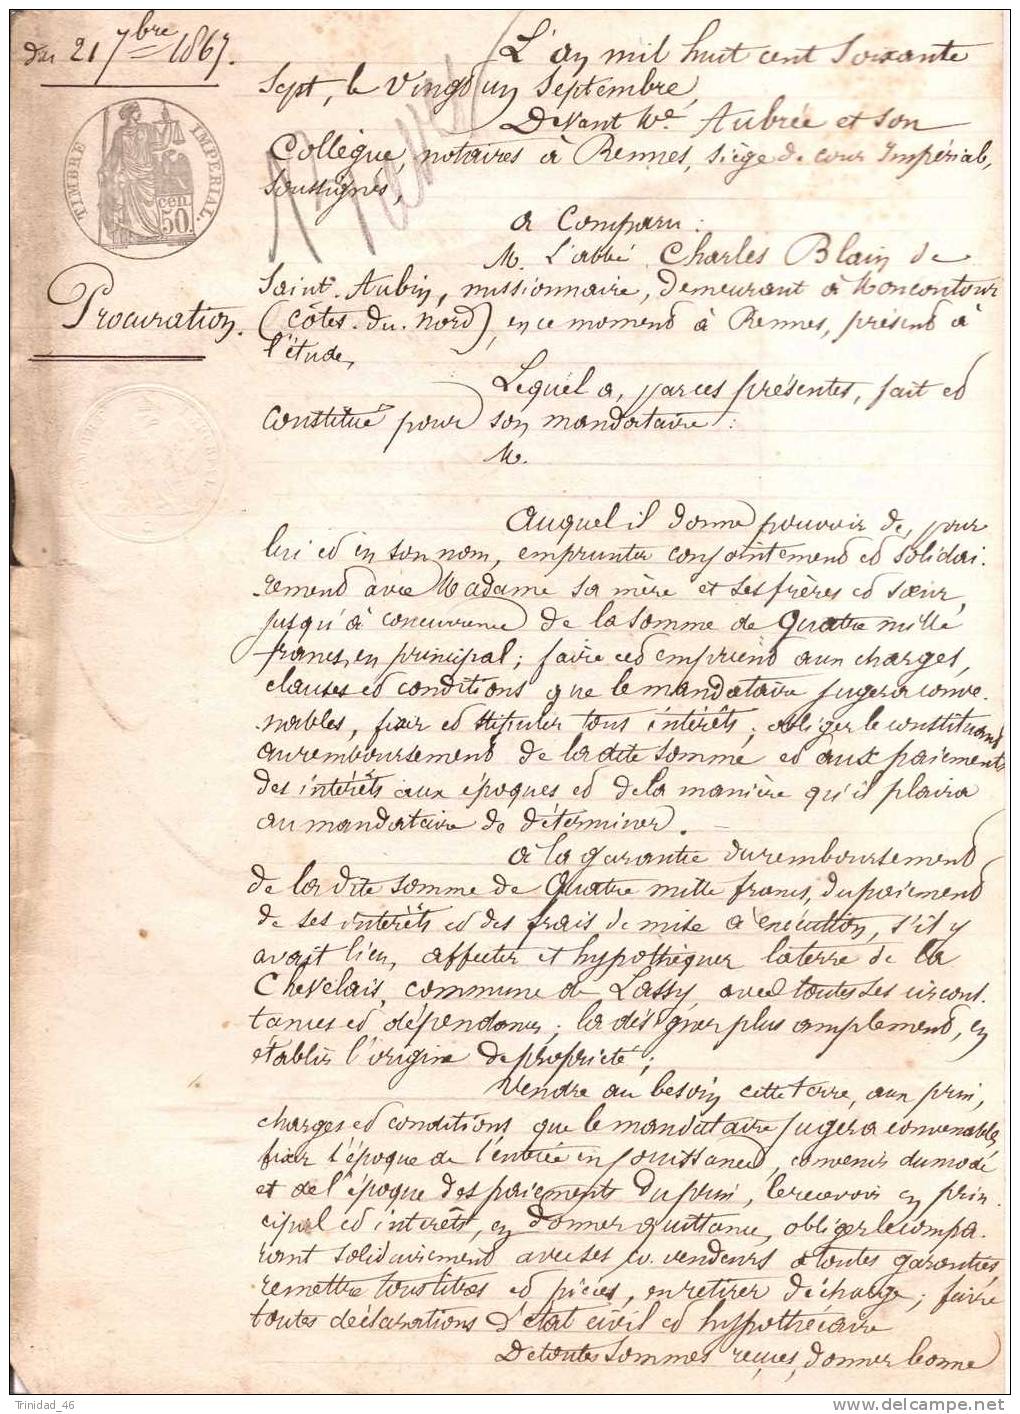 du 21 7bre 1867.
TIMBRE IMPERIAL.
50 cen
Procuration.
L'an mil huit cent soixante
Sept, le vingt un Septembre,
Devant Me Aubrée et son
Collègue, notaires à Rennes, siège de cour Impériale,
Soussignés,
a Comparu :
M. L'abbé Charles Blain de
Saint-Aubin, missionnaire, demeurant à Moncontour
(Côtes-du-Nord), en ce moment à Rennes, présent à
l'étude,
Lequel a, par ces présentes, fait et
constitué pour son mandataire :
M.
Auquel il donne pouvoir de, pour
lui et en son nom, emprunter conjointement et solidai-
-rement avec Madame sa mère et ses frères et sœur,
jusqu'à concurrence de la somme de Quatre mille
francs, en principal ; faire cet emprunt aux charges,
clauses et conditions que le mandataire jugera conve-
nables, fixer et stipuler tous intérêts ; obliger le constituant
au remboursement de la dite somme et aux paiements
des intérêts aux époques et de la manière qu'il plaira
au mandataire de déterminer. -
a la garantie du remboursement
de la dite somme de Quatre mille francs, du paiement
de ses intérêts et des frais de mise à exécution, s'il y
avait lieu, affecter et hypothéquer la terre de la
Chevelais, commune de Lassy, avec toutes ses circons-
tances et dépendances ; la désigner plus amplement, en
établir l'origine de propriété ;
Vendre au besoin cette terre, aux prix,
charges et conditions que le mandataire jugera convenables,
fixer l'époque de l'entrée en jouissance, convenir du mode
et de l'époque des paiements du prix, le recevoir en prin-
cipal et intérêts, en donner quittance, obliger le compa-
rant solidairement avec ses co-vendeurs à toutes garanties,
remettre tous titres et pièces, en retirer décharge ; faire
toutes déclarations d'état civil et hypothécaire
De toutes sommes reçues, donner bonne
Trinidad_46
www.delcampe.net